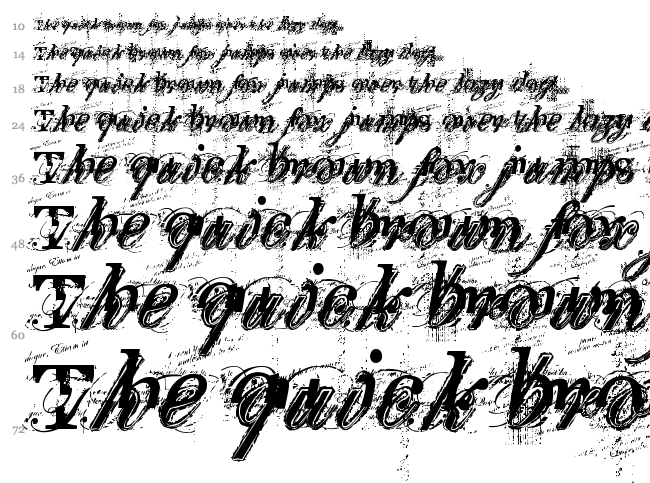 10 The quick brown fox jumps over the lazy dog.
14 The quick brown fox jumps over the lazy dog.
18 The quick brown fox jumps over the lazy dog.
24 The quick brown fox jumps over the lazy
36 The quick brown fox jumps
48 The quick brown fox
60 The quick brown
72 The quick bro